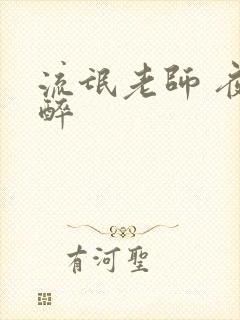 流氓老師
醉
有河聖